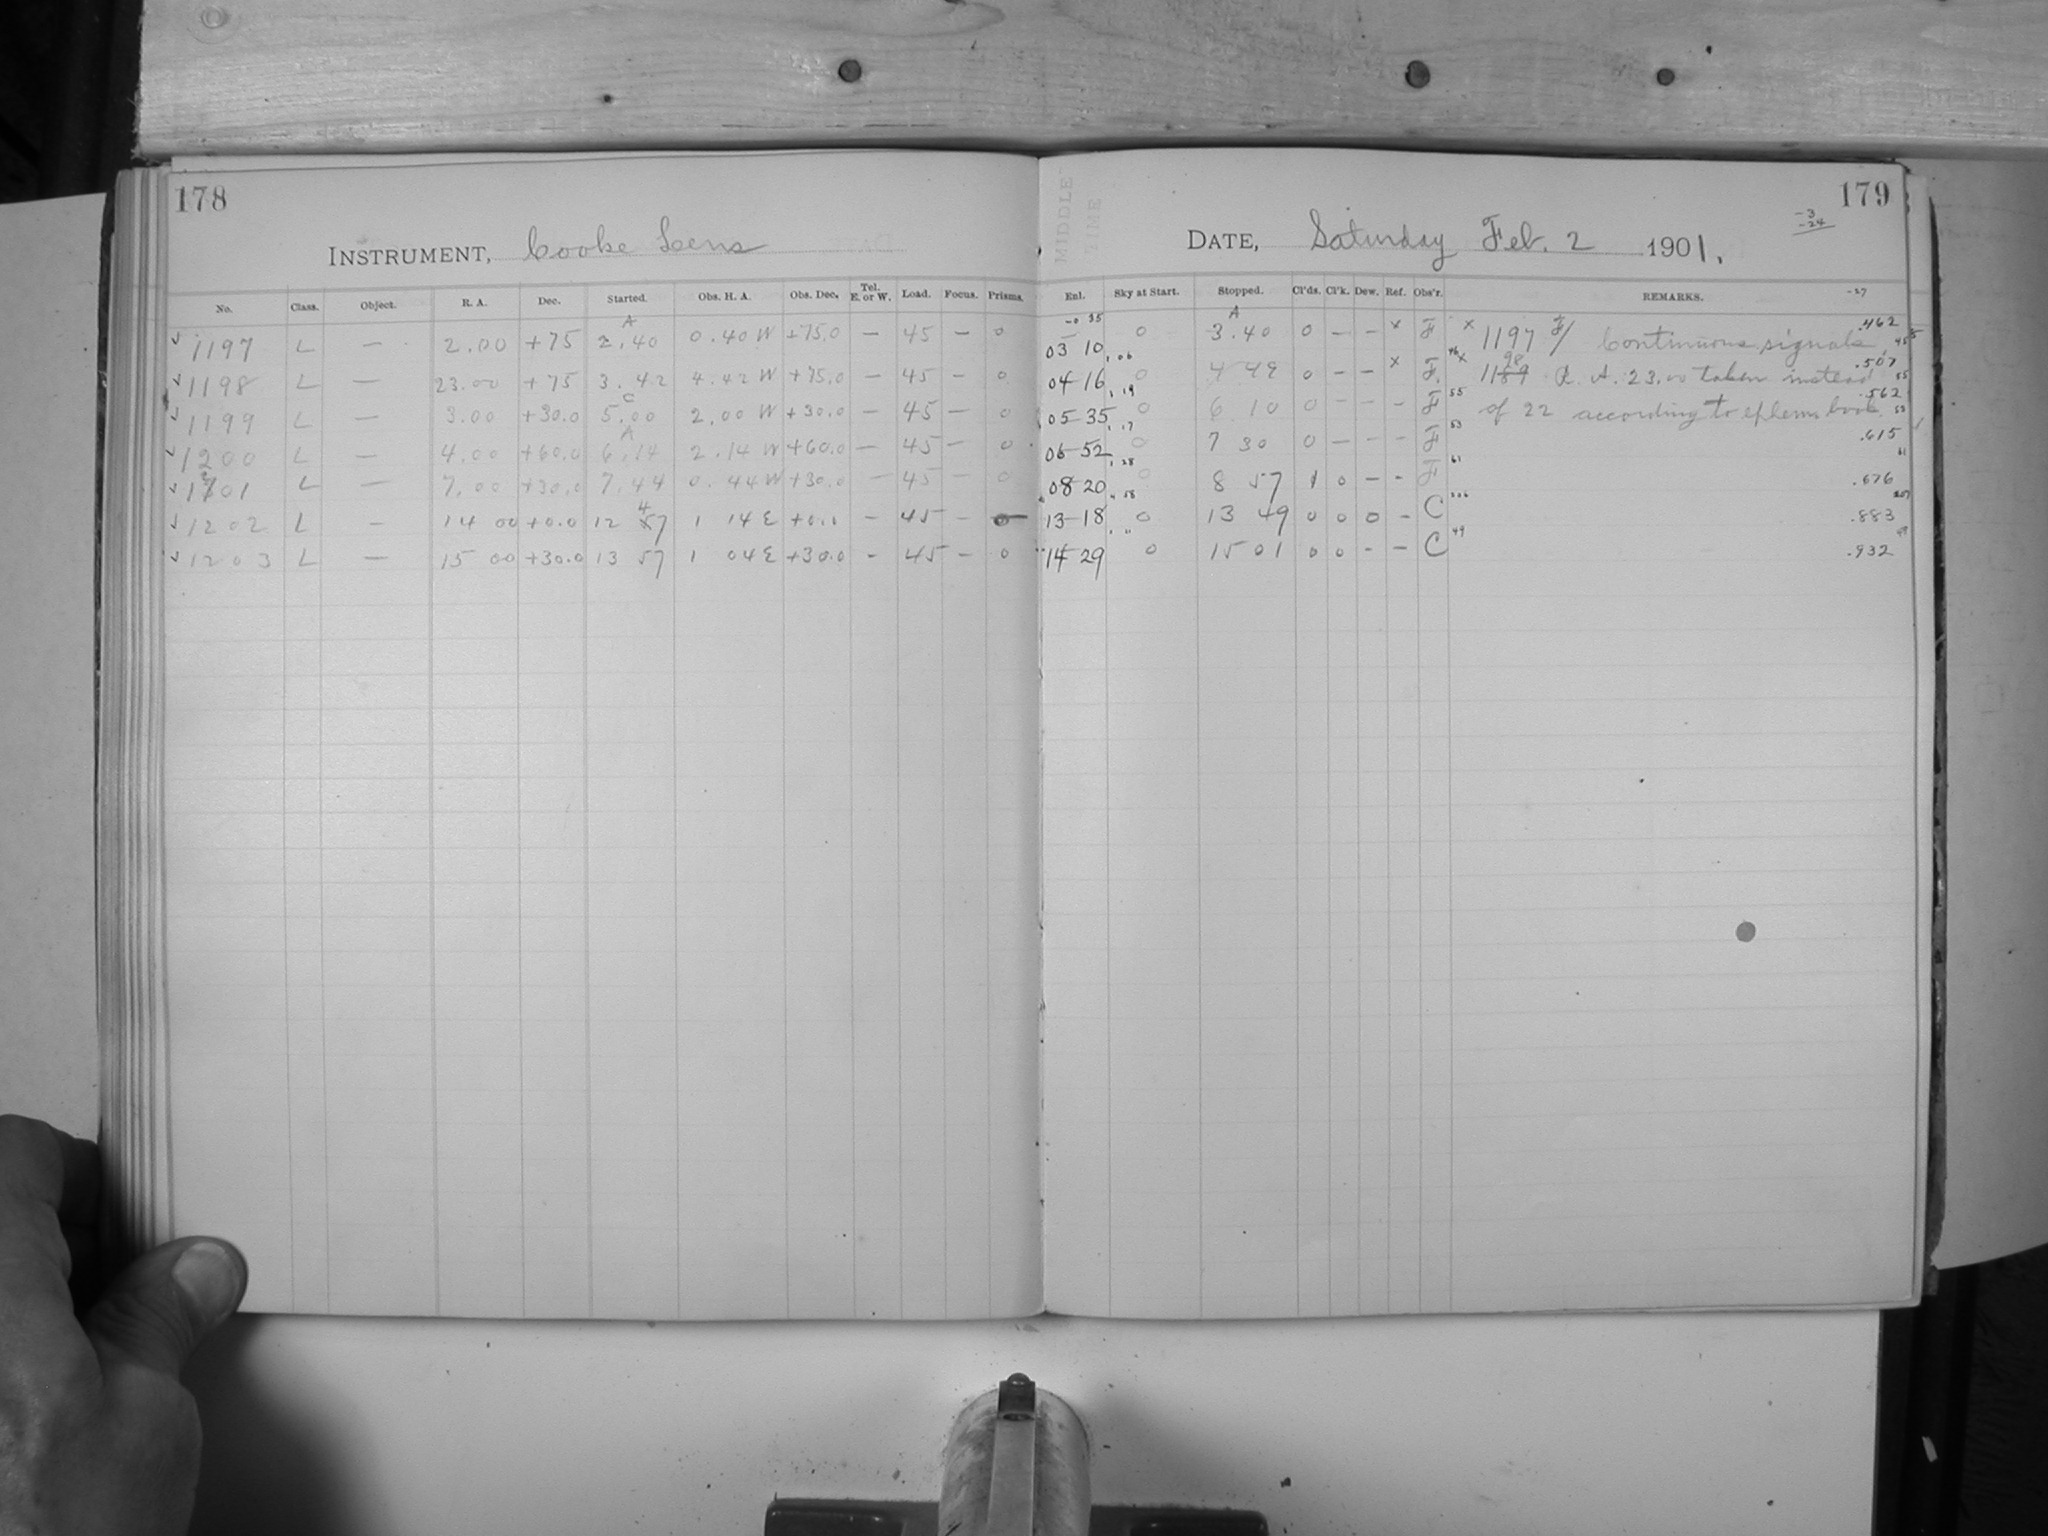 178
INSTRUMENT, Cooke Lens
No. Class. Object. R. A. Dec. Started. Obs. H. A. Obs. Dec. Tel. E. or W. Load. Focus. Prisms.
A
√ 1197 L — 2.00 +75 2.40 0.40 W +75.0 — 45 — 0
√ 1198 L — 23.00 +75 3.42 4.42 W +75.0 — 45 — 0
C
√ 1199 L — 3.00 +30.0 5.00 2.00 W +30.0 — 45 — 0
A
√ 1200 L — 4.00 +60.0 6.14 2.14 W +60.0 — 45 — 0
√ 1201 L — 7.00 +30.0 7.44 0.44 W +30.0 — 45 — 0
√ 1202 L — 14 00 +0.0 12 47 1 14 E +0.1 — 45 — 0
√ 1203 L — 15 00 +30.0 13 57 1 04 E +30.0 - 45 — 0
MIDDLE TIME
179
-3
-24
DATE, Saturday Feb. 2 1901.
Enl. Sky at Start. Stopped. Cl'ds. Cl'k. Dew. Ref. Obs'r. REMARKS. -27
A
03 10 0 3.40 0 — — x F x 1197 F/ Continuous signals .462
04-16 0 4 49 0 — — x F. x 1198 R. A. 23.00 taken instead .507
05-35 0 6 10 0 — — - F of 22 according to ephem book. .562
06-52 0 7 30 0 — - - F .615
08 20 0 8 57 1 0 — - F .676
13-18 0 13 49 0 0 0 - C .883
14-29 0 15 01 0 0 - — C .932